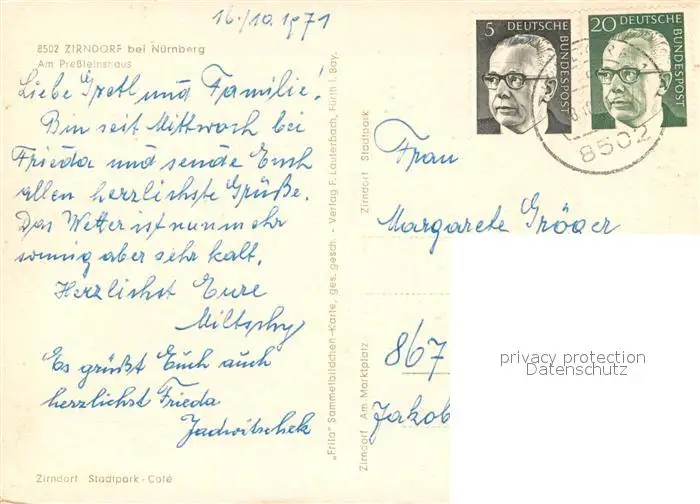 16./10.1971
8502 ZIRNDORF bei Nürnberg
Am Preßleinshaus
Liebe Gretl und Familie!
Bin seit Mittwoch bei
Frieda und sende Euch
allen herzlichste Grüße.
Das Wetter ist nunmehr
sonnig aber sehr kalt.
Herzlichst Eure
Es grüßt Euch auch
herzlichst Frieda
Jadwitschek
Zirndorf Stadtpark-Café
„Frila" Sammelbildchen-Karte, ges. gesch. - Verlag F. Lauterbach, Fürth i. Bay.
Zirndorf Stadtpark
Zirndorf Am Marktplatz
5 DEUTSCHE BUNDESPOST
20 DEUTSCHE BUNDESPOST
8502
Frau
Margarete Gröger
867
Jakob
privacy protection
Datenschutz